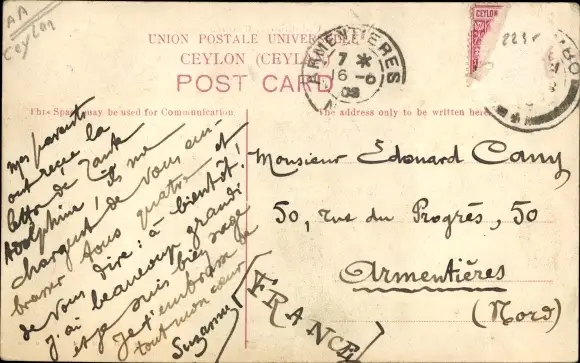 AA
Ceylon
UNION POSTALE UNIVERSELLE
CEYLON (CEYLAN)
POST CARD
ARMENTIERES
7 *
16 - 6
08
CEYLON
This Space may be used for Communication
The address only to be written here
mes parents
ont reçue la
lettre de Tante
Adolphine ! ils me
chargent de vous em-
brasser tous quatre et
de vous dire : à bientôt !
j'ai beaucoup grandi
et je suis bien sage
Je t'embrasse de
tout mon cœur
Suzanne
Monsieur Edouard Cany
50, rue du Progrès, 50
Armentières
(Nord)
FRANCE